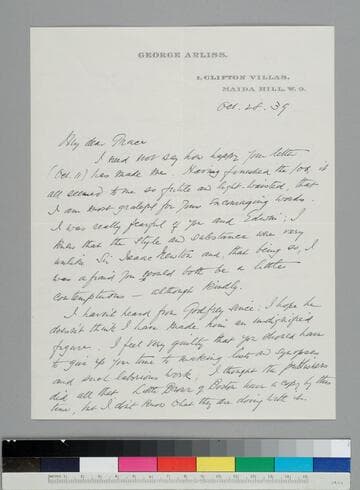 GEORGE ARLISS.
1, CLIFTON VILLAS,
MAIDA HILL, W. 9.
Oct. 28. 39
My dear Grace
I need not say how happy your letter
(Oct. 11) has made me. Having finished the job it
all seemed to me so futile and light-waisted, that
I am most grateful for your encouraging words.
I was really fearful of you and Edwin; I
knew that the style and substance were very
unlike Sir Isaac Newton and, that being so, I
was afraid you would both be a little
contemptuous — although kindly.
I haven't heard from Godfrey since: I hope he
doesn't think I have made him an undignified
figure. I feel very guilty that you should have
to give up your time to making lists and synopses
and such laborious work. I thought the publishers
did all that. Little Brown of Boston have a copy by this
time, but I don't know what they are doing with it.